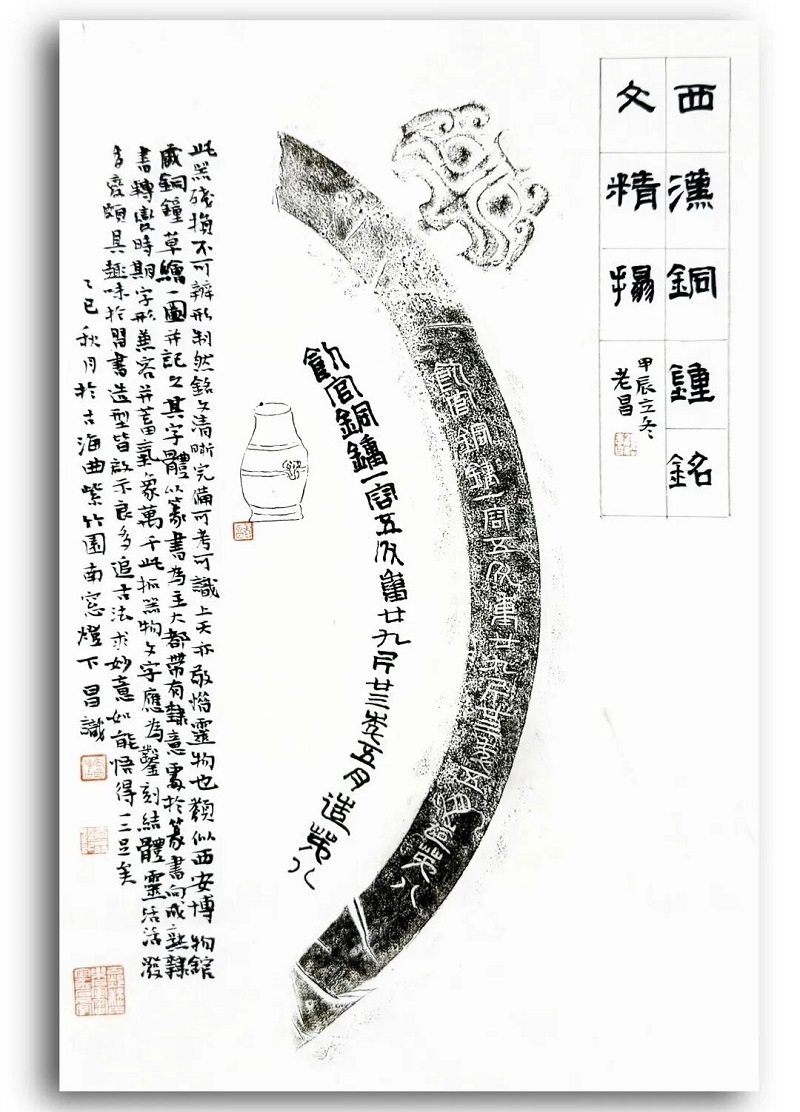 西漢銅鍾銘
文精搨
甲辰立冬
老昌
飤官銅鍾一容五
廿九斤廿三
五月造第八
此器殘損不可辨形制然銘文清晰完備可考可識上天亦敬惜靈物也類似西安博物館
藏銅鐘草繪一圖并記之其字體以篆書為主大都帶有隸意處於篆書向成熟隸
書轉變時期字形兼容并蓄氣象萬千此拓器物文字應為鑿刻結體靈活活潑
多變頗具趣味於習書造型皆啟示良多追古法求妙意如能悟得一二足矣
乙巳秋月於古海曲紫竹園南窓燈下昌識